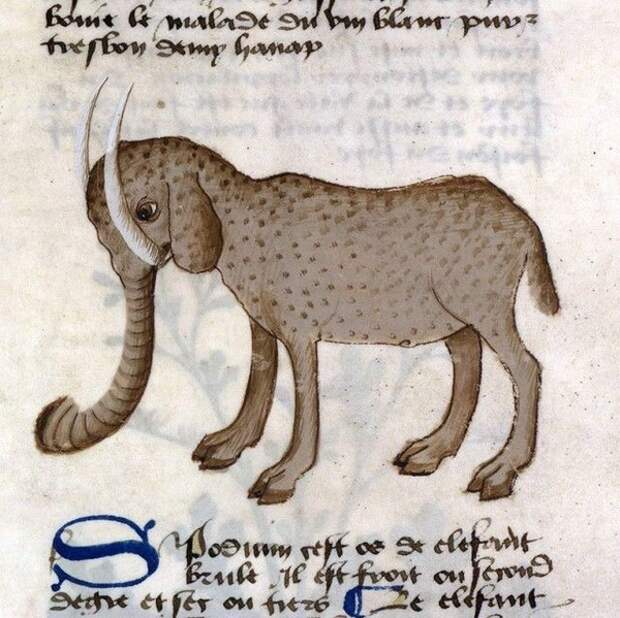 boire le malade du vin blanc pur ⁊
tresbon demy hanap
Spodium cest os de elefant
brule il est froit ou second
degre et sec ou tiers Le elefant